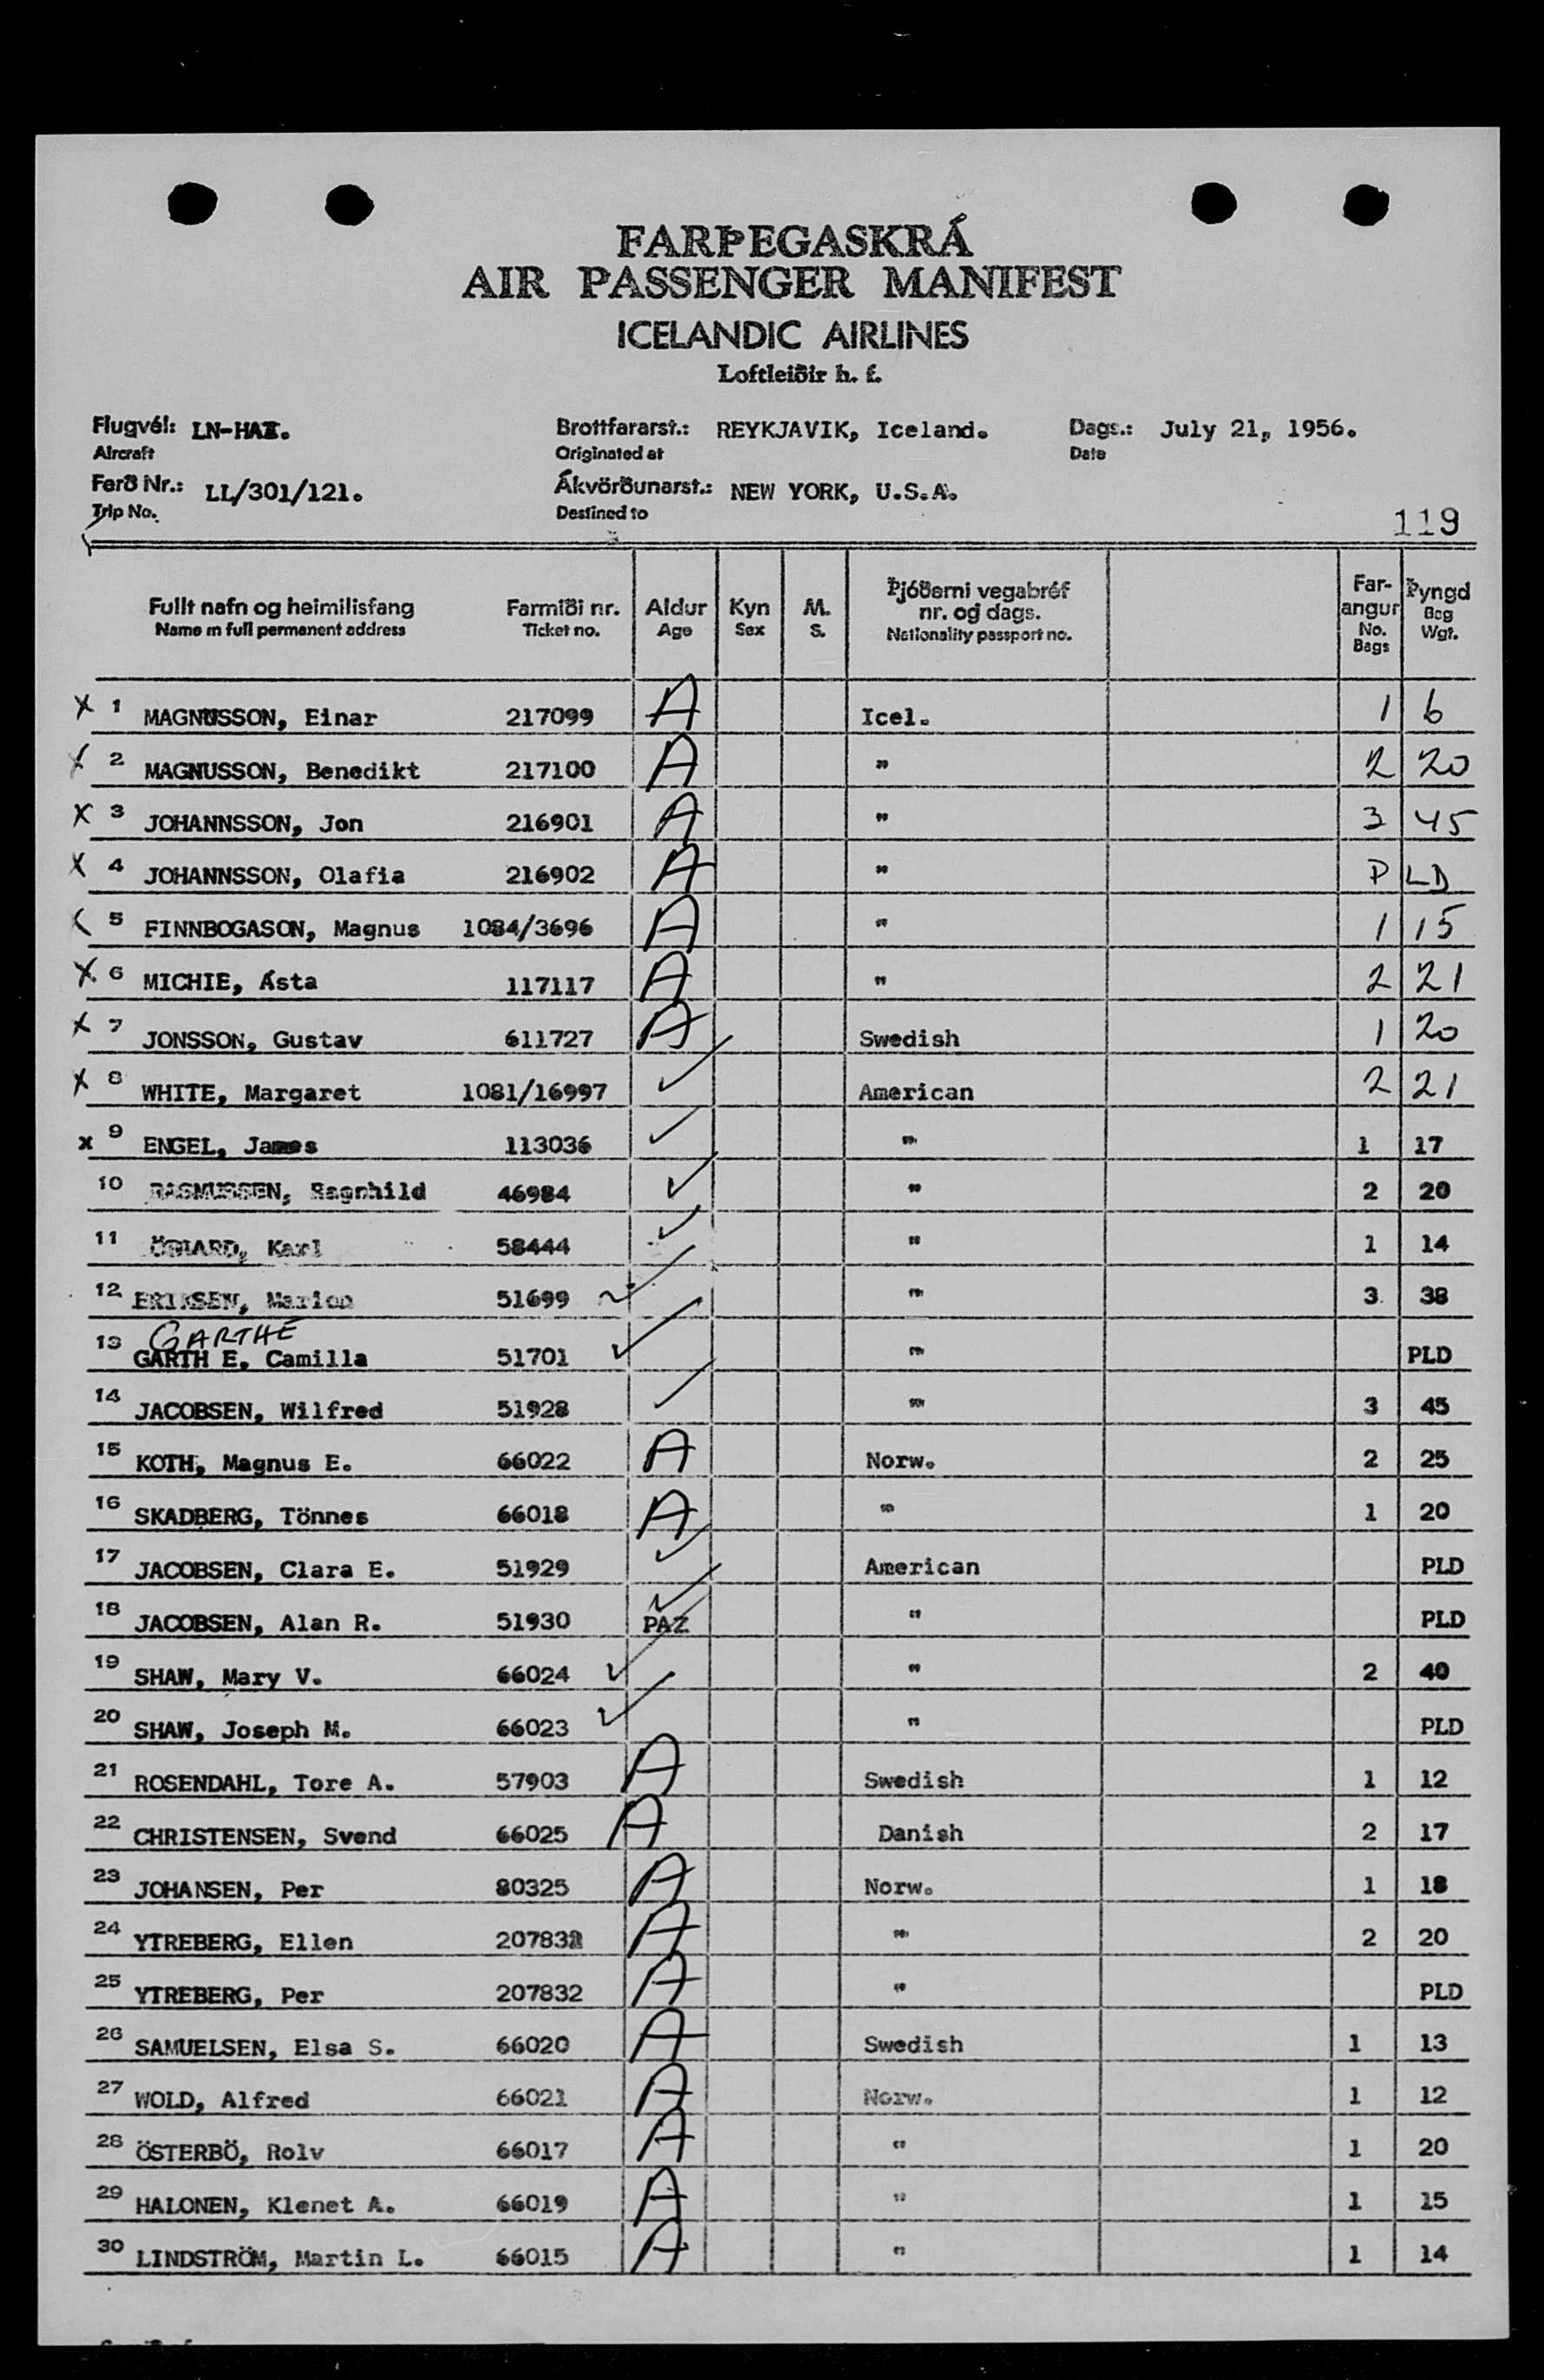 FARÞEGASKRÁ
AIR PASSENGER MANIFEST
ICELANDIC AIRLINES
Loftleiðir h. f.
Flugvél: LN-HAI. Brottfararst.: REYKJAVIK, Iceland. Dags.: July 21, 1956.
Aircraft Originated at Date
Ferð Nr.: LL/301/121. Ákvörðunarst.: NEW YORK, U.S.A.
Trip No. Destined to
119
Fullt nafn og heimilisfang Farmiði nr. Aldur Kyn M. Þjóðerni vegabréf nr. og dags. Far-angur Þyngd
Name in full permanent address Ticket no. Age Sex S. Nationality passport no. No. Bags Bag Wgt.
X 1 MAGNUSSON, Einar 217099 A Icel. 1 6
X 2 MAGNUSSON, Benedikt 217100 A " 2 20
X 3 JOHANNSSON, Jon 216901 A " 3 45
X 4 JOHANNSSON, Olafia 216902 A " PLD
5 FINNBOGASON, Magnus 1084/3696 A " 1 15
X 6 MICHIE, Ásta 117117 A " 2 21
X 7 JONSSON, Gustav 611727 A Swedish 1 20
X 8 WHITE, Margaret 1081/16997 ✓ American 2 21
x 9 ENGEL, James 113036 ✓ " 1 17
10 RASMUSSEN, Ragnhild 46984 ✓ " 2 20
11 Karl 58444 ✓ " 1 14
12 ERIKSEN, Marion 51699 ✓ " 3 38
GARTHE
13 GARTH E. Camilla 51701 ✓ " PLD
14 JACOBSEN, Wilfred 51928 ✓ " 3 45
15 KOTH, Magnus E. 66022 A Norw. 2 25
16 SKADBERG, Tönnes 66018 A " 1 20
17 JACOBSEN, Clara E. 51929 ✓ American PLD
18 JACOBSEN, Alan R. 51930 ✓ PAZ " PLD
19 SHAW, Mary V. 66024 ✓ " 2 40
20 SHAW, Joseph M. 66023 ✓ " PLD
21 ROSENDAHL, Tore A. 57903 A Swedish 1 12
22 CHRISTENSEN, Svend 66025 A Danish 2 17
23 JOHANSEN, Per 80325 A Norw. 1 18
24 YTREBERG, Ellen A " 2 20
25 YTREBERG, Per 207832 A " PLD
26 SAMUELSEN, Elsa S. 66020 A Swedish 1 13
27 WOLD, Alfred 66021 A Norw. 1 12
28 ÖSTERBÖ, Rolv 66017 A " 1 20
29 HALONEN, Klenet A. 66019 A " 1 15
30 LINDSTRÖM, Martin L. 66015 A " 1 14